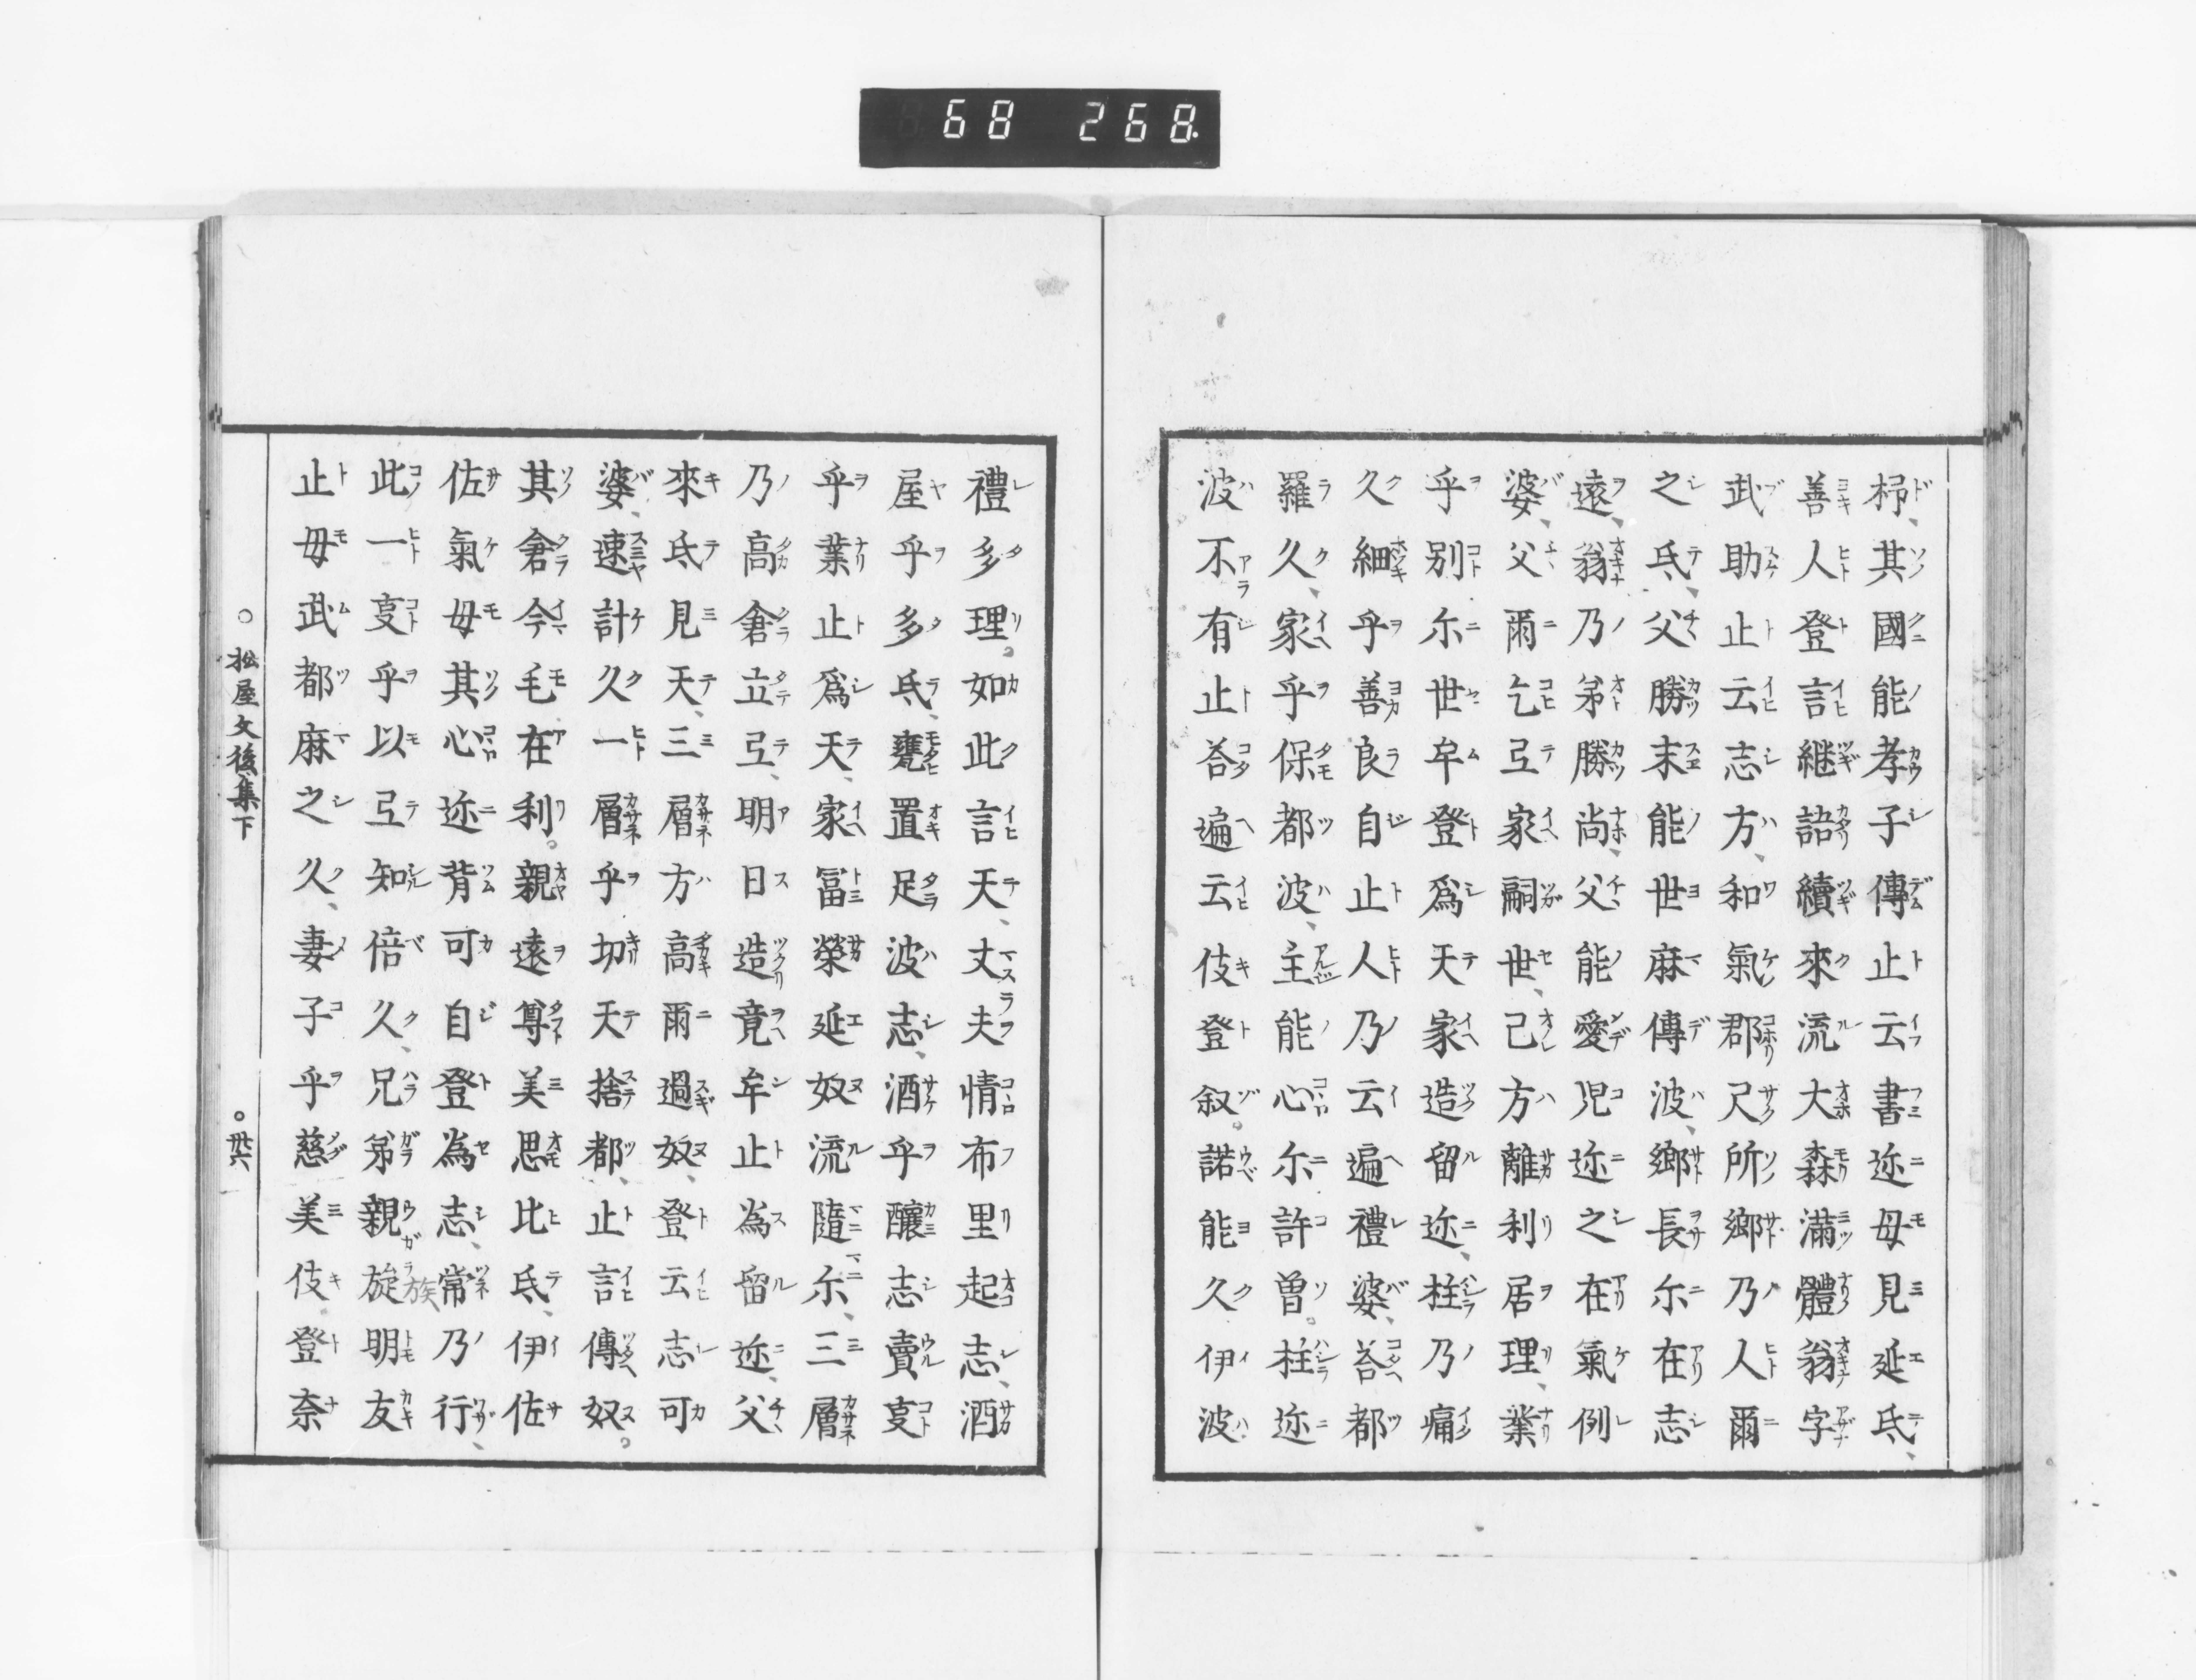 68 268.
杼、其國能孝子傳止云書迩毋見延氐、
善人登言継語續來流大森滿體翁字
武助止云志方、和氣郡尺所郷乃人爾
之氐、父勝末能世麻傳波、郷長尓在志
遠、翁乃弟勝尚、父能愛児迩之在氣例
婆、父爾乞弖家嗣世、己方離利居理、業
乎別尓世牟登爲天家造留迩、柱乃痛
久細乎善良自止人乃云遍禮婆、荅都
羅久、家乎保都波、主能心尓許曽。柱迩
波不有止荅遍云伎登叙。諾能久伊波
禮多理。如此言天、丈夫情布里起志、酒
屋乎多氐、甕置足波志、酒乎釀志賣亊
乎業止爲天、家冨榮延奴流隨尓、三層
乃高倉立弖、明日造竟牟止為留迩、父
來氐見天、三層方高爾過奴、登云志可
婆、速計久一層乎切天捨都、止言傳奴。
其倉今毛在利。親遠尊美思比氐、伊佐
佐氣毋其心迩背可自登為志、常乃行、
此一亊乎以弖知倍久、兄弟親旋族明友
止毋武都麻之久、妻子乎慈美伎。登奈
○松屋文後集下 ○卅六